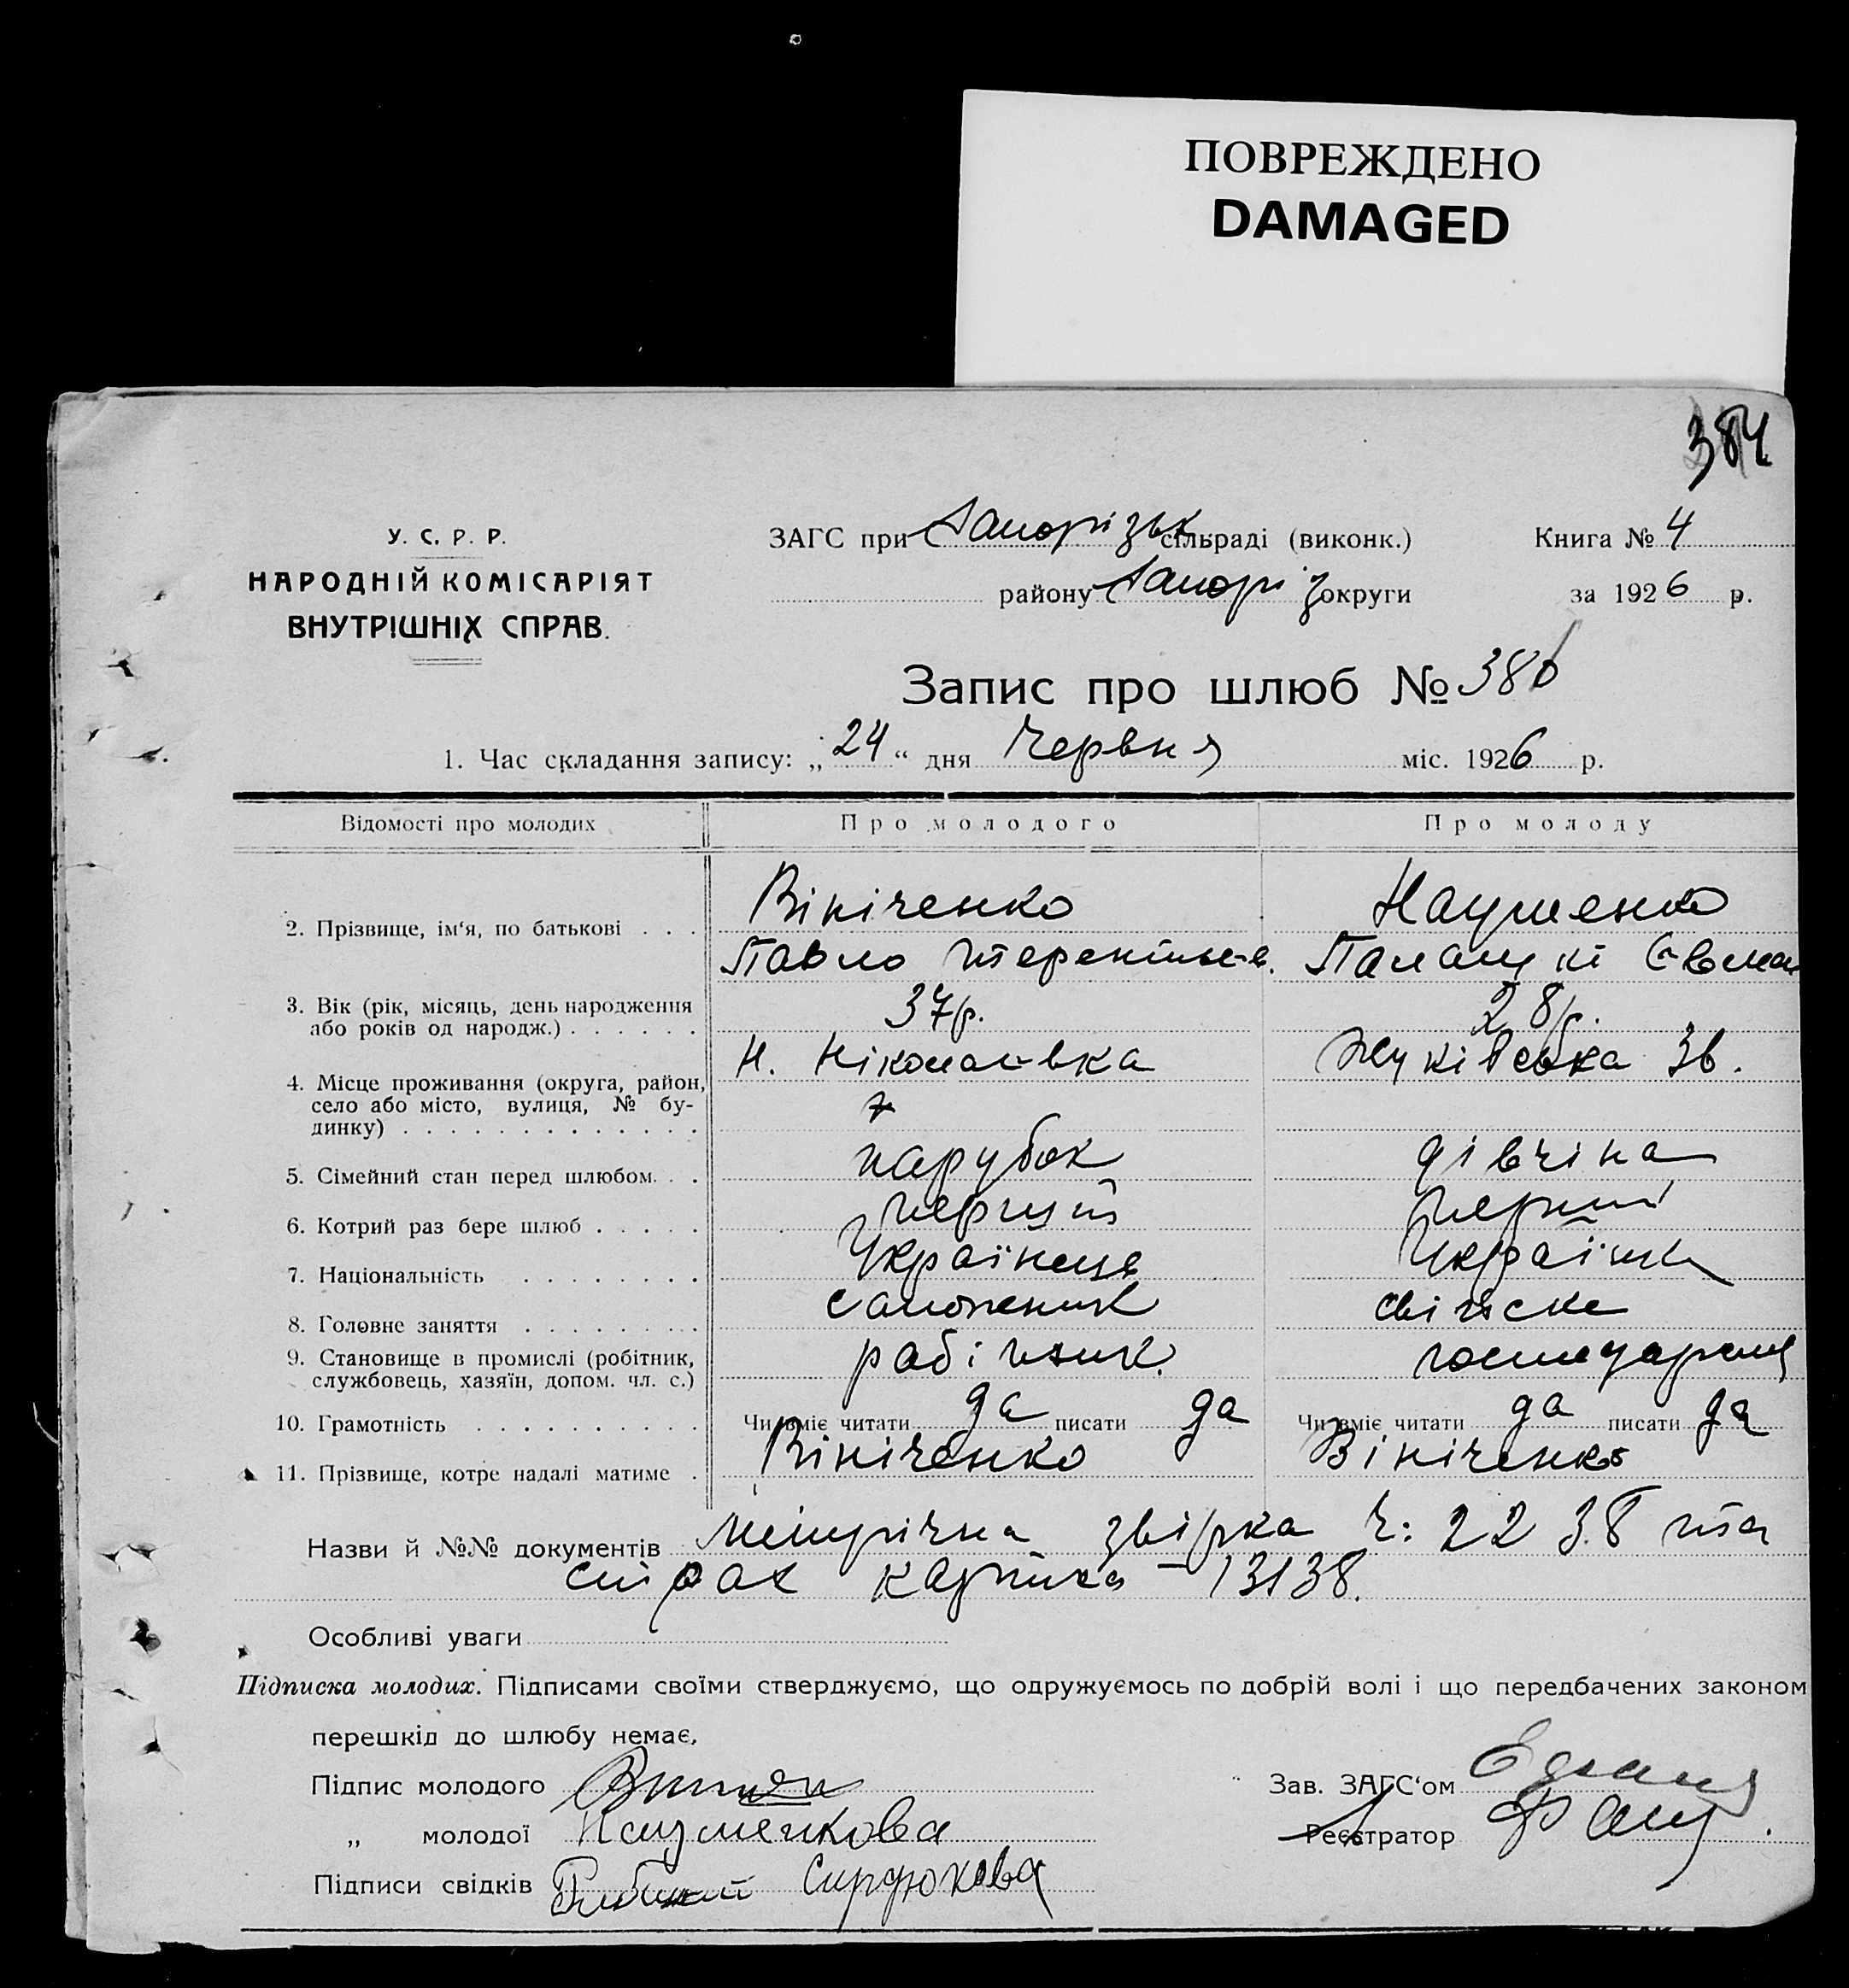 ПОВРЕЖДЕНО
DAMAGED
384
У. С. Р. Р.
НАРОДНІЙ КОМІСАРІЯТ
ВНУТРІШНІХ СПРАВ.
ЗАГС при Запорізьк. сільраді (виконк.)
району Запоріз округи
Книга № 4
за 1926 р.
Запис про шлюб № 380
1. Час складання запису: „24“ дня Червня міс. 1926 р.
Відомості про молодих Про молодого Про молоду
2. Прізвище, ім‘я, по батькові . . . Вініченко Науменко
Павло Терентьев.
3. Вік (рік, місяць, день народження
або років од народж.) . . . . . . 37р. 28р.
4. Місце проживання (округа, район,
село або місто, вулиця, № бу-
динку) . . . . . . . . . . . . . Н. Ніколаевка Жуківська 36.
5. Сімейний стан перед шлюбом. . . парубок дівчіна
6. Котрий раз бере шлюб . . . . . перший перший
7. Національність . . . . . . . . Українець Українка
8. Головне заняття . . . . . . . . сапожник сільске
9. Становище в промислі (робітник,
службовець, хазяїн, допом. чл. с.) робітник.
10. Грамотність . . . . . . . . . . Чи вміє читати да писати да Чи вміє читати да писати да
11. Прізвище, котре надалі матиме . Вініченко Вініченко
Назви й №№ документів метрічна звірка ч: 2238 та
страх картка – 13138.
Особливі уваги
Підписка молодих. Підписами своїми стверджуємо, що одружуємось по добрій волі і що передбачених законом
перешкід до шлюбу немає,
Підпис молодого
„ молодої Науменкова
Підписи свідків Сирдюкова
Зав. ЗАГС‘ом
Реєстратор